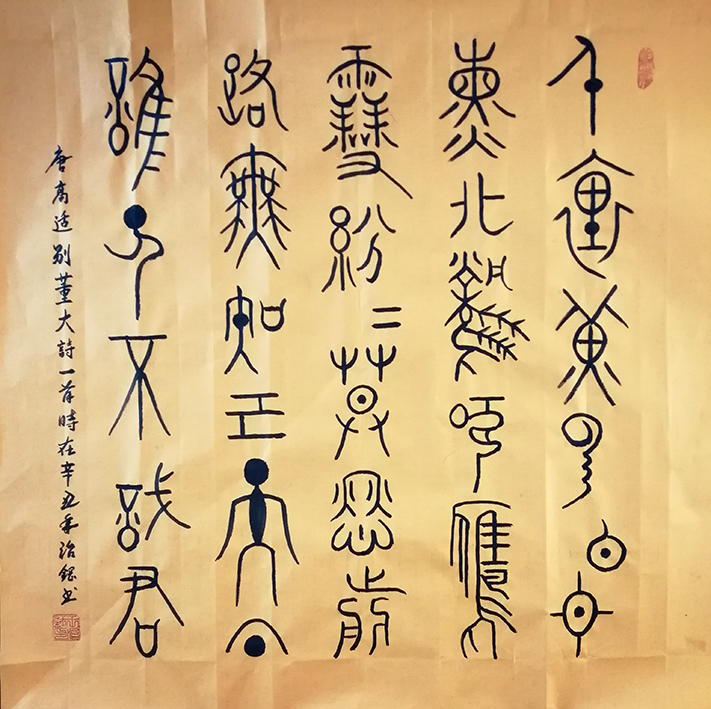 千里黃云白日
熏北風吹雁
雪紛〻莫愁前
路無知己天下
誰人不識君
唐高适别董大詩一首時在辛丑年治书